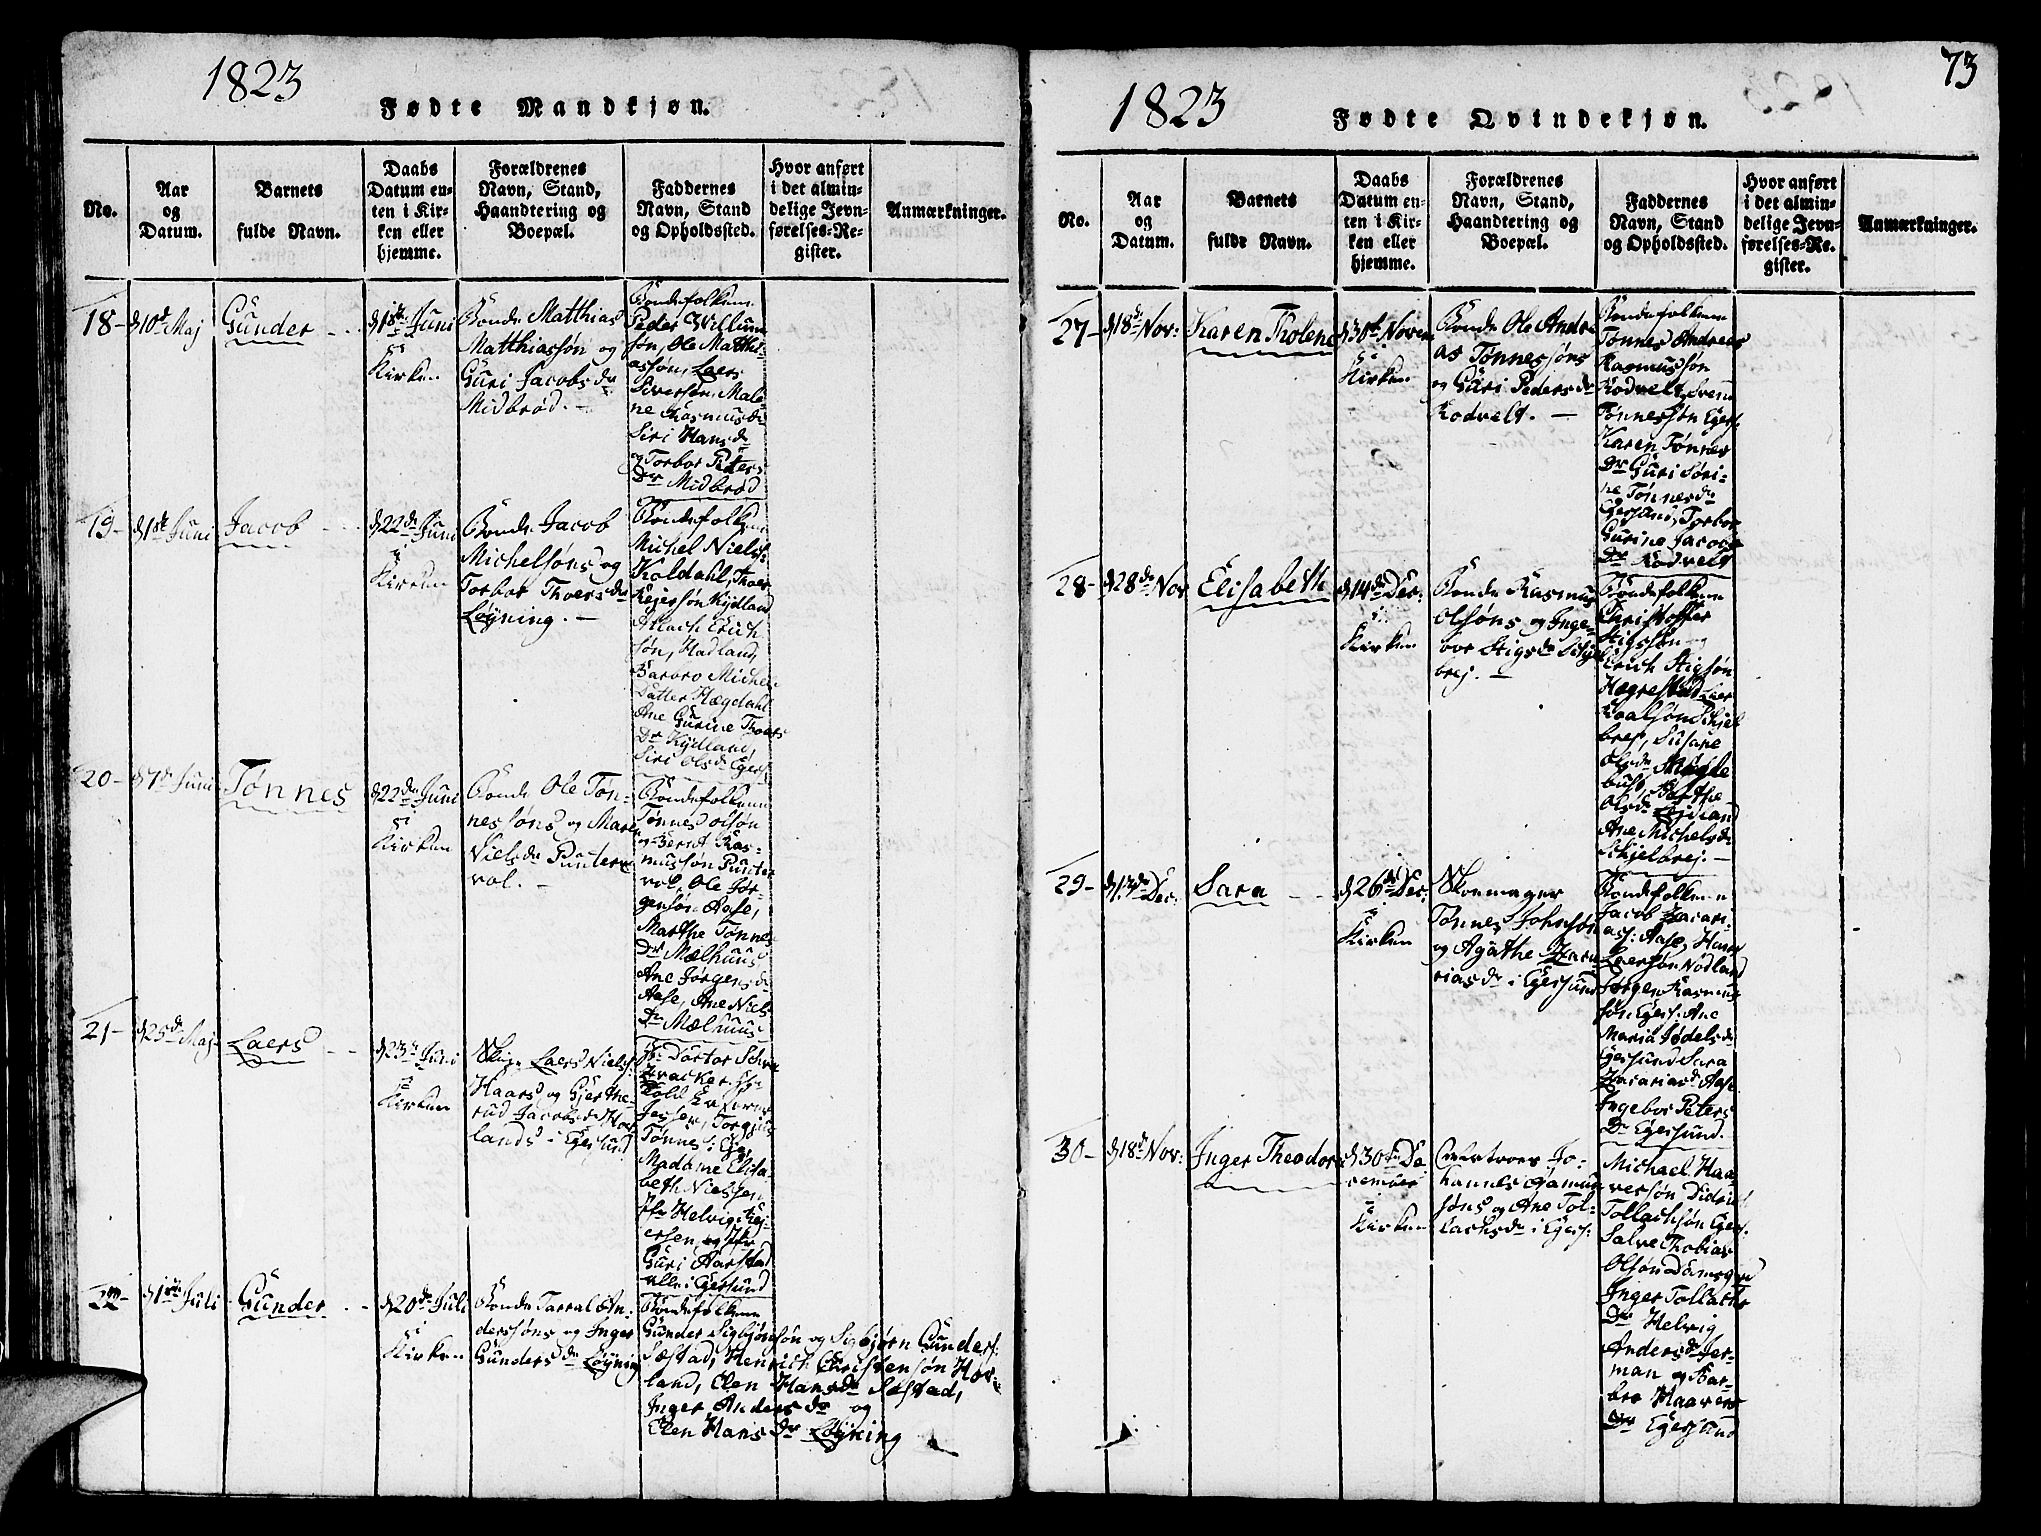 1823
Fødte Mandkjøn.
No.
Aar
og
Datum.
Barnets
fulde Navn.
Daabs
Datum en-
ten i Kir-
ken eller
hjemme.
Forældrenes
Navn, Stand,
Haandtering og
Boepæl.
Faddernes
Navn, Stand
og Opholdssted.
Hvor anført
i det almin-
delige Jevn-
førelses-Re-
gister.
Anmærkninger.
18-
d 10d Maj
Gunder
d 18de Juni
i
Kirken
Bonde Matthias
Matthiassøn og
Guri Jacobsdr
Midbrød.
Bondefolkene
Peder Willum
søn, Ole Matthi-
assøn, Laers
Siversøn, Male-
ne Rasmusdr
Siri Hansdr
og Torbor Peters
Dr Midbrød
19-
d 1ste Juni
Jacob
d 22de Juni
i
Kirken
Bonde Jacob
Michelsøns og
Torbor Thoersdr
Løyning.
Bondefolkene
Michel Niels:
Koldahl, Thoer
Rejersøn Kydland
Erich
søn, Hadland,
Barbro Michels
Datter Hægdahl
Ane Gurine Thoers
Dr Kydland,
Siri Olsdr Egers:
20-
d 7d Juni
Tønnes
d 22de Juni
i
Kirken
Bonde Ole Tøn-
nessøns og Maren
Nielsdr Punter-
vol.
Bondefolkene
Tønnes Olsøn
og Bernt Ras-
mussøn Punter
vol, Ole Jør-
gensøn Aase,
Marthe Tønnes
Dr Mælhuus
Ane Jørgensdr
Aase, Ane Niels
Dr Mælhuus
21-
d 25d Maj
Laers
d 23d Juni
i
Kirken
Laers Niels:
Haars og Gjerthe-
rud Jacobsdr Hov
lands i Egersund
Hr Doctor
Jensen, Torgius
Tønnes: Eg,
Madame Elisa-
beth Nielsen
Jfr Helvig Rej-
ersen og Jfr
Guri Aarstad
alle i Egersund
22-
d 1ste Juli
Gunder
d 20de Juli
i
Kirken
Bonde Tarral An-
derssøns og Inger
Gundersdr Løyning
Bondefolkene
Gunder Sigbjørnsøn og Sigbjørn Gunders:
Sæstad, Henrich Christensøn Hov-
land, Elen Hansdr Sæstad,
Inger Andersdr og
Elen Hans Dr Løyning
73
1823
Fødte Qvindekjøn.
No.
Aar
og
Datum.
Barnets
fulde Navn.
Daabs
Datum en-
ten i Kir-
ken eller
hjemme.
Forældrenes
Navn, Stand,
Haandtering og
Boepæl.
Faddernes
Navn, Stand
og Opholdssted.
Hvor anført
i det almin-
delige Jevn-
førelses-Re-
gister.
Anmærkninger.
27-
d 18d Nov:
Karen Tholene
d 30te Novem
i
Kirken
Bonde Ole Andre
as Tønnessøns
og Guri Pedersdr
Rodvelt.
Bondefolkene
Tønnes Andreas
Rasmussøn
Rodvelt, Svenn
Tønnessøn Egers:
Karen Tønnes
Dr Guri Søri-
ne Tønnesdr
Egersund, Torbor
Gurine Jacobs
Dr Rodvelt
28-
d 28de Nov
Elisabeth
d 14de Dec:
i
Kirken
Bonde Rasmus
Olsøns og Inge-
bor Stigsdr Schjel
brej.
Bondefolkene
Christoffer
Stigsøn og
Erich Stigsøn
Hægrestad, Laer
Roalsøn Schjel
brej, Susane
Olsdr
Olsdr Lydland
Ane Michelsdr
Schjelbrej.
29-
d 13de Dec:
Sara
d 26de Dec:
i
Kirken
Skomager
Tønnes Johnsøn
og Agathe Zaca
riasdr i Egersund
Bondefolkene
Jacob Zacari-
as: Aase, Hans
Laersøn Nodland
Jørgen Rasmus
søn Egers: Ane
Maria Jødelsdr
Egersund Sara
Zacariasdr Aase
Ingebor Peters
Dr Egersund.
30-
d 18d Nov:
Inger Theodora
d 30te De
cember
i
Kirken
Jo-
hannes Gamun
søns og Ane Tol-
lachsdr i Egers:
Michael Haa-
versøn Didrich
Tollachsøn Egers:
Salve Thobias
Olsøn Damsgard
Inger Tollachs
Dr Helvig
Andersdr Jer-
man og Bar-
bro Haavers
Dr Egersund